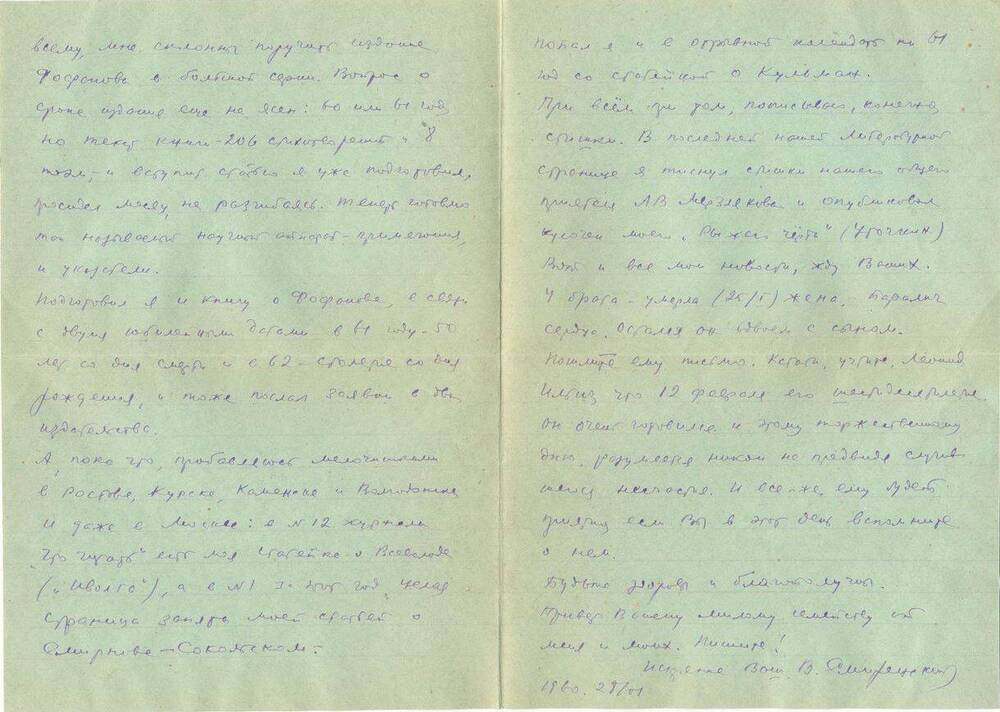 всему, мне склонны поручить издание
Фофанова в большой серии. Вопрос о
сроке издания еще не ясен: 60 или 61 год,
но текст книги – 206 стихотворений и 8
поэм, – и вступит. статью я уже подготовил,
месяц, не разгибаясь. Теперь готовлю
так называемый научный аппарат – примечания,
и указатели.
Подготовил я и книгу о Фофанове, в связи
с двумя юбилейными датами в 61 году – 50
лет со дня смерти и в 62 – столетие со дня
рождения, и тоже послал заявки в два
издательства.
А, пока что, пробавляюсь мелочишками
в Ростове, Курске, Каменске и Волгодонске
И даже в Москве: в № 12 журнала
„Что читать" есть моя статейка о Всеволоде
(„Иволга"), а в № 1 за этот год, целая
страница занята моей статьей о
Смирнове-Сокольском.–
Попал я и в отрывной календарь на 61
год со статейкой о Кульман.
При всём при том, пописываю, конечно,
стишки. В последней нашей Литературной
странице я тиснул стишки нашего общего
приятеля А В Мерзлякова и опубликовал
кусочек моего „Рыжего чёрта" (Уточкин)
Вот и все мои новости, жду Ваших.
У брата – умерла (25/I) жена. Паралич
сердца. Остался он вдвоем с сыном.
Пошлите ему письмо. Кстати, учтите, Леонид
что 12 февраля его шестидесятилетие
он очень готовился к этому торжественному
дню, разумеется никак не предвидя случив-
шегося несчастья. И все-же, ему будет
приятно если Вы в этот день вспомните
о нем.
Будьте здоровы и благополучны.
Привет Вашему милому семейству от
меня и моих. Пишите!
Искренне Ваш В. Смиренский
1960. 29/01